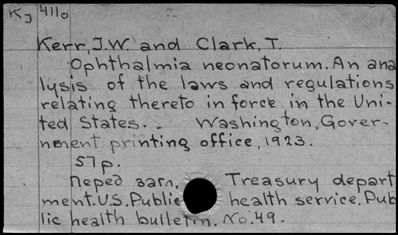 KJ 4110
Kerr, J.W. and Clark, T.
Ophthalmia neonatorum. An ana
lysis of the laws and regulations
relating thereto in force in the Uni-
ted States.. Washington, Gover-
nment printing office, 1923.
57 p.
Перед загл. Treasury depart
ment. U.S. Public health service. Pub
lic health bulletin. No. 49.